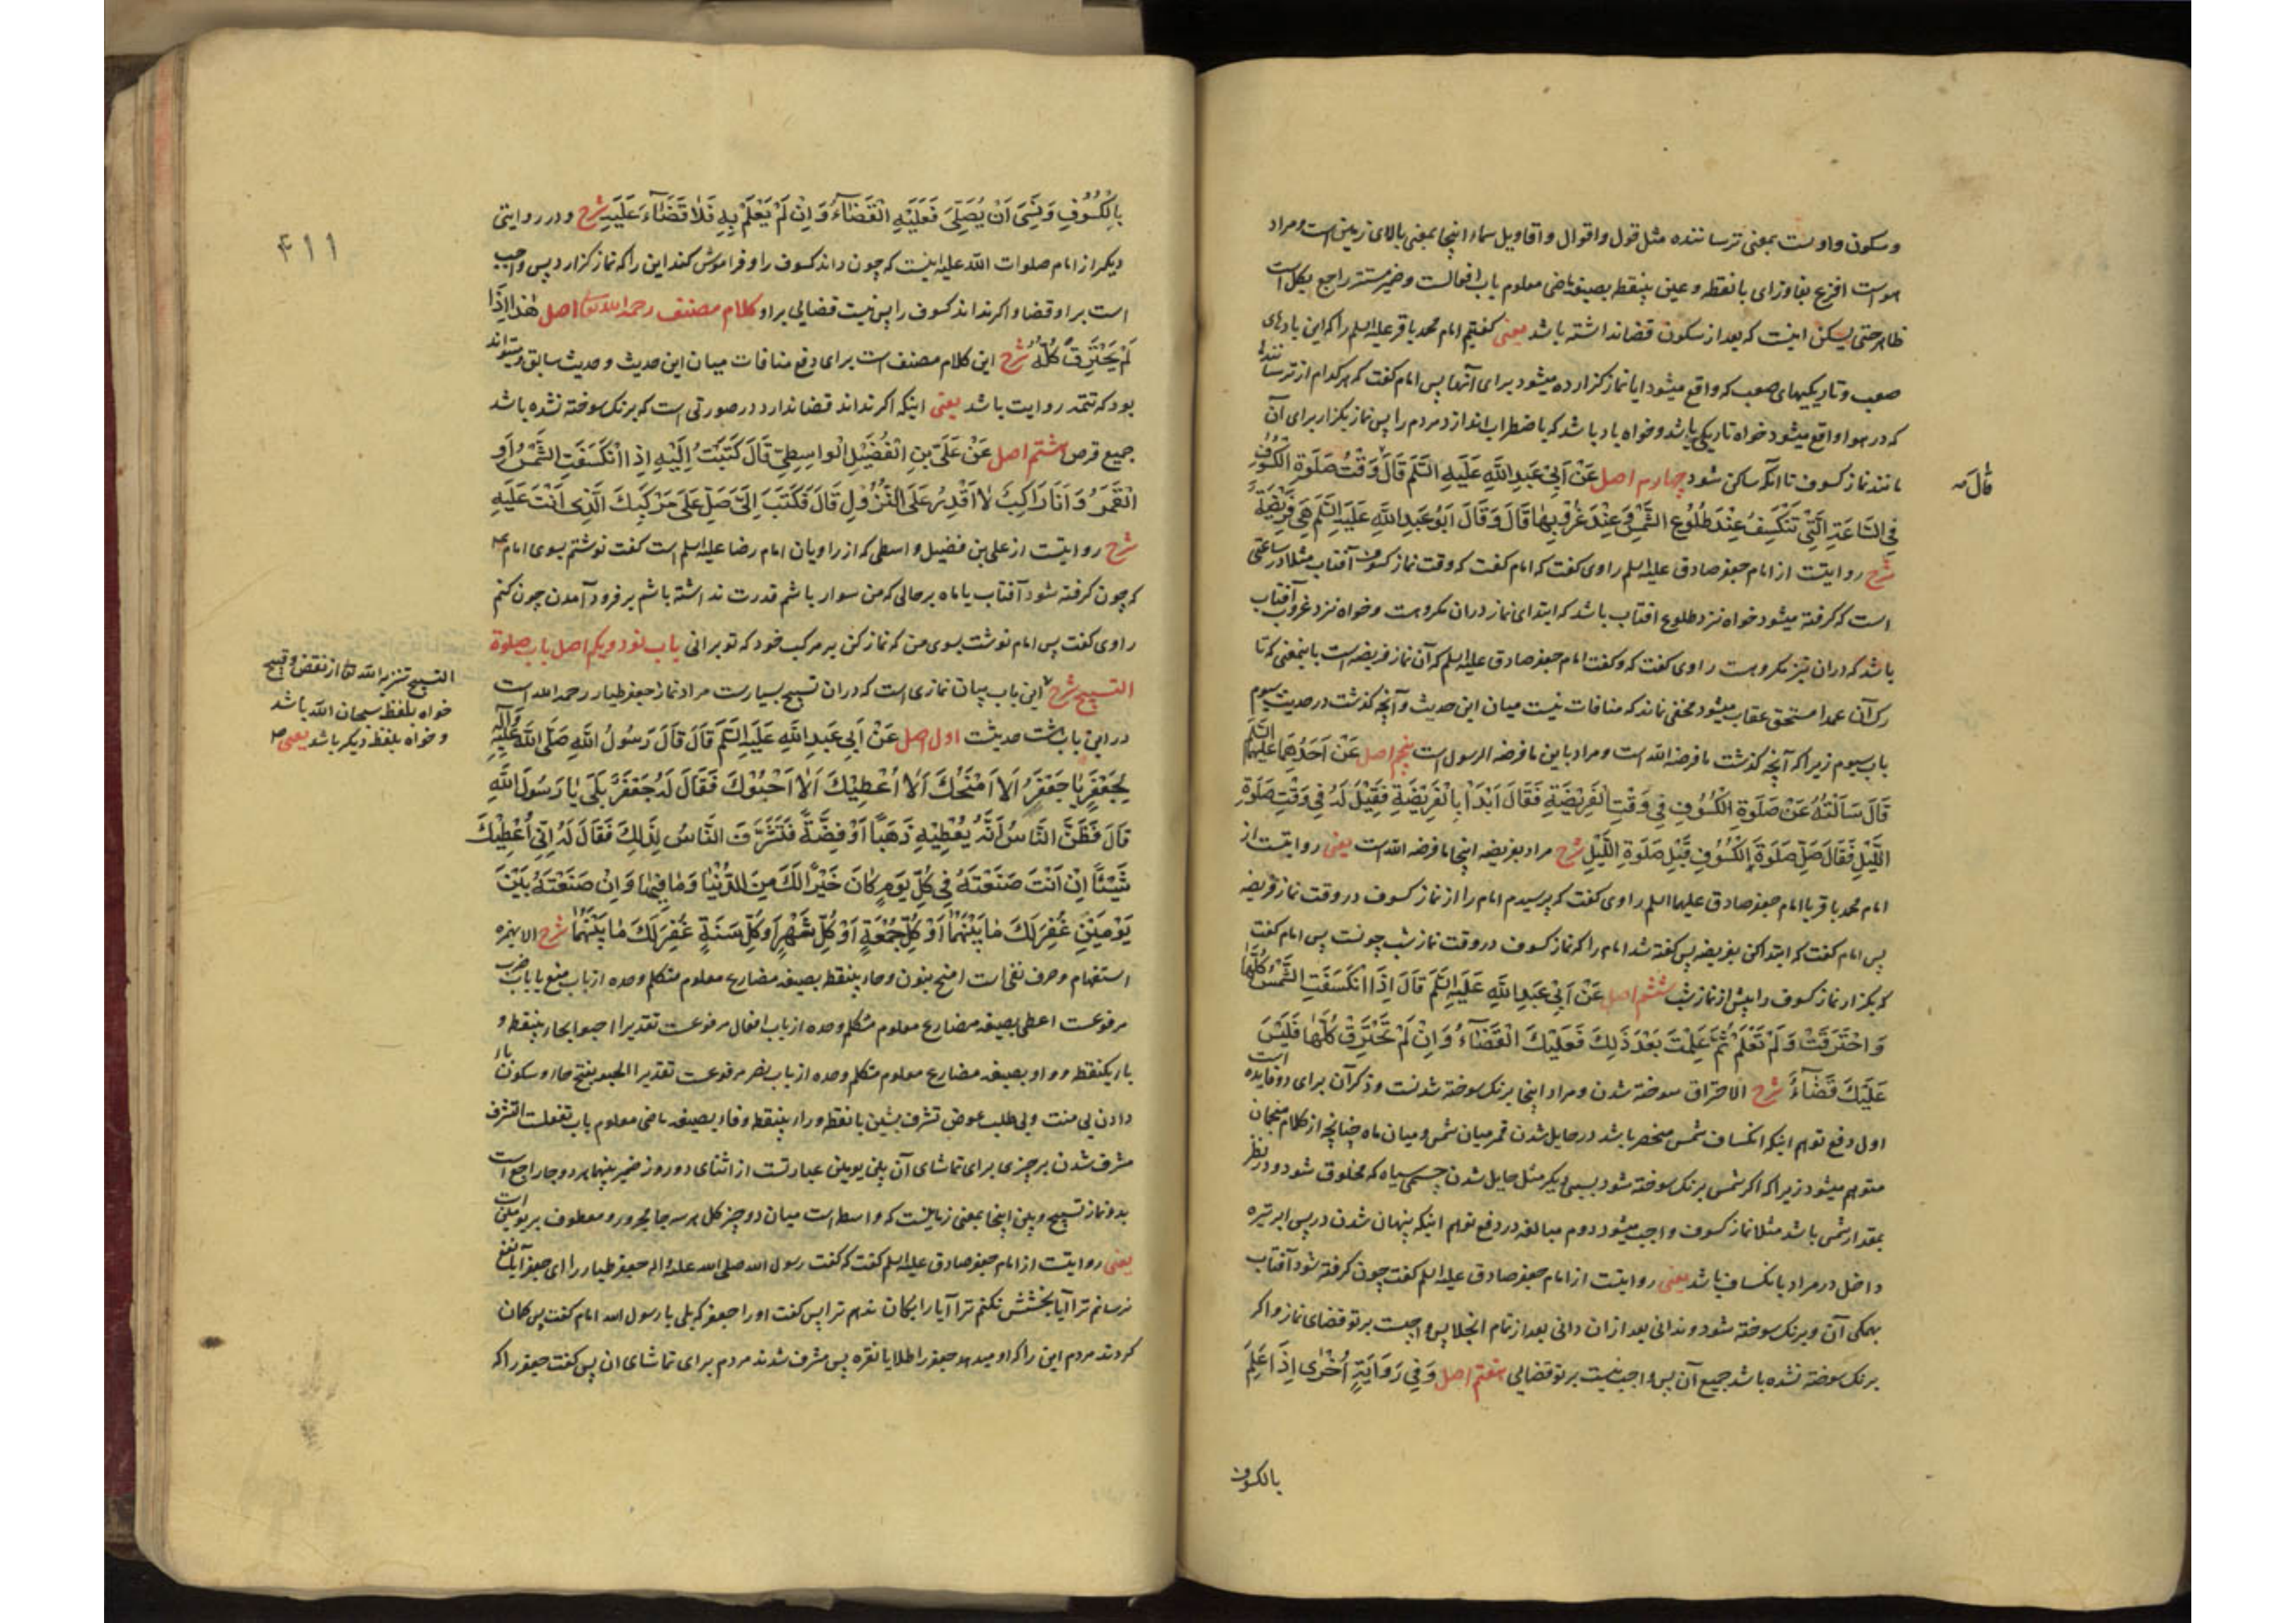 و سکون واو است بمعنی ترساننده مثل قول و اقوال و اقاویل سماء اینجا بمعنی بالای زمین است و مراد
هواست افزع بفا و زای بانقطه و عین بینقطه بصیغه ماضی معلوم باب افعالست و ضمیر مستتر راجع بکل است
ظاهر حتی یسکن اینست که بعد از سکون قضا نداشته باشد یعنی کفتیم امام محمد باقر علیه السلم را که این بادهای
صعب و تاریکیهای صعب که واقع میشود ایا نماز کزارده میشود برای آنها پس امام کفت که هر کدام از ترسانندها
که در هوا واقع میشود خواه تاریکی باشد و خواه باد باشد که باضطراب اندازد مردم را پس نماز بکزار برای آن
مانند نماز کسوف تا آنکه ساکن شود چهارم اصل عَنْ اَبِیْ عَبْدِ اللَّهِ عَلَیْهِ السَّلَمُ قَالَ وَقْتُ صَلٰوةِ الْکُسُوْفِ
فِی السَّاعَةِ الَّتِیْ تَنْکَسِفُ عِنْدَ طُلُوْعِ الشَّمْسِ وَ عِنْدَ غُرُوْبِهَا قَالَ وَ قَالَ اَبُوْ عَبْدِ اللَّهِ عَلَیْهِ السَّلَمُ هِیَ فَرِیْضَةٌ
شرح روایتست از امام جعفر صادق علیه السلم راوی کفت که امام کفت که وقت نماز کسوف آفتاب مثلا در ساعتی
است که کرفته میشود خواه نزد طلوع افتاب باشد که ابتدای نماز دران مکروهست و خواه نزد غروب آفتاب
باشد که دران نیز مکروهست راوی کفت که و کفت امام جعفر صادق علیه السلم که آن نماز فریضه است باینمعنی که تا
رک آن عمدا مستحق عقاب میشود مخفی نماند که منافات نیست میان این حدیث و آنچه کذشت در حدیث سیوم
باب سیوم زیرا که آنچه کذشت ما فرضه الله است و مراد باین ما فرضه الرسول است پنجم اصل عَنْ اَحَدِهِمَا عَلَیْهِمَا السَّلَمُ
قَالَ سَاَلْتُهُ عَنْ صَلٰوةِ الْکُسُوْفِ فِیْ وَقْتِ الْفَرِیْضَةِ فَقَالَ ابْدَاْ بِالْفَرِیْضَةِ فَقِیْلَ لَهُ فِیْ وَقْتِ صَلٰوةِ
اللَّیْلِ فَقَالَ صَلِّ صَلٰوةَ الْکُسُوْفِ قَبْلَ صَلٰوةِ اللَّیْلِ شرح مراد بفریضه اینجا ما فرضه الله است یعنی روایتست از
امام محمد باقر یا امام جعفر صادق علیهما السلم راوی کفت که پرسیدم امام را از نماز کسوف در وقت نماز فریضه
پس امام کفت که ابتدا کن بفریضه پس کفته شد امام را که نماز کسوف در وقت نماز شب چونست پس امام کفت
که بکزار نماز کسوف را پیش از نماز شب ششم اصل عَنْ اَبِیْ عَبْدِ اللَّهِ عَلَیْهِ السَّلَمُ قَالَ اِذَا انْکَسَفَتِ الشَّمْسُ کُلُّهَا
وَ احْتَرَقَتْ وَ لَمْ تَعْلَمْ ثُمَّ عَلِمْتَ بَعْدَ ذَلِکَ فَعَلَیْکَ الْقَضَآءُ وَ اِنْ لَمْ تَحْتَرِقْ کُلُّهَا فَلَیْسَ
عَلَیْکَ قَضَآءٌ شرح الاحتراق سوخته شدن و مراد اینجا برنک سوخته شدنست و ذکر آن برای دو فایده است
اول دفع توهم اینکه انکساف شمس منحصر باشد در حایل شدن قمر میان شمس و میان ماه چنانچه از کلام منجمان
متوهم میشود زیرا که اکر شمس برنک سوخته شود بسببی دیکر مثل حایل شدن جسمی سیاه که مخلوق شود و در نظر
بمقدار شمس باشد مثلا نماز کسوف واجب میشود دوم مبالغه در دفع توهم اینکه پنهان شدن در پس ابر تیره
داخل در مراد بانکساف باشد یعنی روایتست از امام جعفر صادق علیه السلم کفت چون کرفته شود آفتاب
بهمکی آن و برنک سوخته شود و ندانی بعد ازان دانی بعد از تمام انجلا پس واجبست بر تو قضای نماز و اکر
برنک سوخته نشده باشد جمیع آن پس واجب نیست بر تو قضایی هفتم اصل وَ فِیْ رِوَایَةٍ اُخْرٰی اِذَا عَلِمَ
قَالَ صه
بالکسوف
بِالْکُسُوْفِ وَ نَسِیَ اَنْ یُصَلِّیَ فَعَلَیْهِ الْقَضَآءُ وَ اِنْ لَمْ یَعْلَمْ بِهِ فَلَا قَضَآءَ عَلَیْهِ شرح و در روایتی
دیکر از امام صلوات الله علیه اینست که چون داند کسوف را و فراموش کند این را که نماز کزارد پس واجب
است بر او قضا و اکر نداند کسوف را پس نیست قضایی بر او کلام مصنف رحمه الله تعالی اصل هٰذَا اِذَا
لَمْ یَحْتَرِقْ کُلُّهُ شرح این کلام مصنف است برای دفع منافات میان این حدیث و حدیث سابق و میتواند
بود که تتمه روایت باشد یعنی اینکه اکر نداند قضا ندارد در صورتی است که برنک سوخته نشده باشد
جمیع قرص هشتم اصل عَنْ عَلِیِّ بْنِ الْفُضَیْلِ الْوَاسِطِیِّ قَالَ کَتَبْتُ اِلَیْهِ اِذَا انْکَسَفَتِ الشَّمْسُ اَوِ
الْقَمَرُ وَ اَنَا رَاکِبٌ لَا اَقْدِرُ عَلَی النُّزُوْلِ قَالَ فَکَتَبَ اِلَیَّ صَلِّ عَلَی مَرْکَبِکَ الَّذِیْ اَنْتَ عَلَیْهِ
شرح روایتست از علی بن فضیل واسطی که از راویان امام رضا علیه السلم است کفت نوشتم بسوی امام
که چون کرفته شود آفتاب یا ماه بر حالی که من سوار باشم قدرت نداشته باشم بر فرود آمدن چون کنم
راوی کفت پس امام نوشت بسوی من که نماز کن بر مرکب خود که تو برانی باب نود و یکم اصل باب صلوة
التسبیح شرح این باب بیان نمازی است که دران تسبیح بسیارست مراد نماز جعفر طیار رحمه الله است
درین باب هشت حدیثست اول اصل عَنْ اَبِیْ عَبْدِ اللَّهِ عَلَیْهِ السَّلَمُ قَالَ قَالَ رَسُوْلُ اللَّهِ صَلَّی اللَّهُ عَلَیْهِ وَآلِهِ
لِجَعْفَرٍ یَا جَعْفَرُ اَلَا اَمْنَحُکَ اَلَا اُعْطِیْکَ اَلَا اَحْبُوْکَ فَقَالَ لَهُ جَعْفَرٌ بَلَی یَا رَسُوْلَ اللَّهِ
قَالَ فَظَنَّ النَّاسُ اَنَّهُ یُعْطِیْهِ ذَهَبًا اَوْ فِضَّةً فَتَشَرَّفَ النَّاسُ لِذٰلِکَ فَقَالَ لَهُ اِنِّیْ اُعْطِیْکَ
شَیْئًا اِنْ اَنْتَ صَنَعْتَهُ فِیْ کُلِّ یَوْمٍ کَانَ خَیْرًا لَکَ مِنَ الدُّنْیَا وَ مَا فِیْهَا وَ اِنْ صَنَعْتَهُ بَیْنَ
یَوْمَیْنِ غُفِرَ لَکَ مَا بَیْنَهُمَا اَوْ کُلَّ جُمْعَةٍ اَوْ کُلَّ شَهْرٍ اَوْ کُلَّ سَنَةٍ غُفِرَ لَکَ مَا بَیْنَهُمَا شرح الا بهمزه
استفهام و حرف نفی است امنح بنون و حاء بینقطه بصیغه مضارع معلوم متکلم وحده از باب منع یا باب ضرب
مرفوعست اعطی بصیغه مضارع معلوم متکلم وحده از باب افعال مرفوعست تقدیرا احبو بحاء بینقطه و
باء یکنقطه و واو بصیغه مضارع معلوم متکلم وحده از باب نصر مرفوعست تقدیرا الحبو بفتح حاء و سکون باء
دادن بی منت و بی طلب عوض تشرف بشین بانقطه و راء بینقطه و فاء بصیغه ماضی معلوم باب تفعلست التشرف
مشرف شدن بر چیزی برای تماشای آن بین یومین عبارتست از اثنای دو روز ضمیر بینهما هر دو جا راجع است
بدو نماز تسبیح و بین اینجا بمعنی زمانیست که واسطه است میان دو چیز کل هر سه جا مجرور و معطوف بر یومین است
یعنی روایتست از امام جعفر صادق علیه السلم کفت که کفت رسول الله صلی الله علیه و اله جعفر طیار را ای جعفر آیا نفع
نرسانم ترا آیا بخشش نکنم ترا آیا رایکان ندهم ترا پس کفت او را جعفر که بلی یا رسول الله امام کفت پس کمان
کردند مردم این را که او میدهد جعفر را طلا یا نقره پس مشرف شدند مردم برای تماشای ان پس کفت جعفر را که
۴۱۱
التسبیح تنزیه الله تعالی از نقص و قبیح
خواه بلفظ سبحان الله باشد
و خواه بلفظ دیکر باشد یعنی